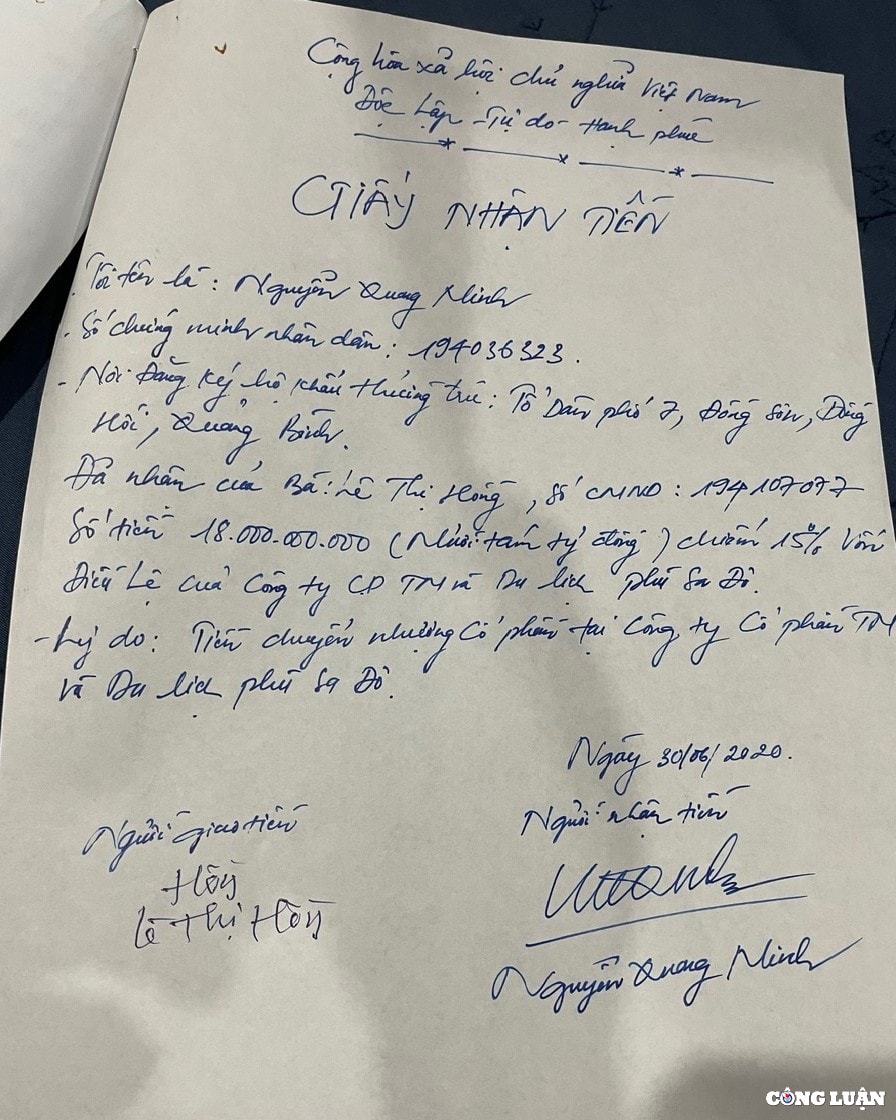 Cộng hòa xã hội chủ nghĩa Việt Nam
Độc Lập - Tự do - Hạnh phúc
GIẤY NHẬN TIỀN
. Tôi tên là : Nguyễn Quang Minh
- Số chứng minh nhân dân : 194036323.
- Nơi Đăng ký hộ khẩu thường trú : Tổ Dân phố 7, Đồng Sơn, Đồng
Hới, Quảng Bình.
Đã nhận của Bà : Lê Thị Hồng, số CMND : 194107077
Số tiền 18.000.000.000 (Mười tám tỷ đồng) chiếm 15% Vốn
Điều Lệ của Công ty CP TM và Du lịch phú Sa Đô.
- Lý do : Tiền chuyển nhượng Cổ phần tại Công ty Cổ phần TM
và Du lịch phú Sa Đô.
Ngày 30/06/2020.
Người giao tiền
Người nhận tiền
Hồng
Lê Thị Hồng
Nguyễn Quang Minh
CÔNG LUẬN